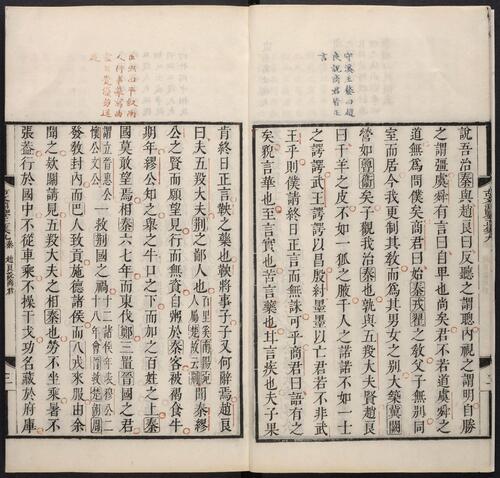 守溪王鏊曰趙
良說商君皆正
言
說吾治秦與趙良曰反聽之謂聰內視之謂明自勝
之謂彊虞舜有言曰自卑也尚矣君不若道虞舜之
道無為問僕矣商君曰始秦戎翟之敎父子無別同
室而居今我更制其敎而為其男女之別大築冀闕
營如魯衞矣子觀我治秦也孰與五羖大夫賢趙良
曰千羊之皮不如一狐之腋千人之諾諾不如一士
之諤諤武王諤諤以昌殷紂墨墨以亡君若不非武
王乎則僕請終日正言而無誅可乎商君曰語有之
矣貌言華也至言實也苦言藥也甘言疾也夫子果
肯終日正言鞅之藥也鞅將事子子又何辭焉趙良
曰夫五羖大夫荊之鄙人也百里奚南陽宛人屬楚故云荊聞秦繆
公之賢而願望見行而無資自鬻於秦客被褐食牛
期年繆公知之舉之牛口之下而加之百姓之上秦
國莫敢望焉相秦六七年而東伐鄭三置晉國之君
謂立晉惠公懷公文公一救荊國之禍十二諸侯年表穆公二十八年會晉救楚朝周
發敎封內而巴人致貢施德諸侯而八戎來服由余
聞之欵關請見五羖大夫之相秦也勞不坐乘暑不
張蓋行於國中不從車乘不操干戈功名藏於府庫